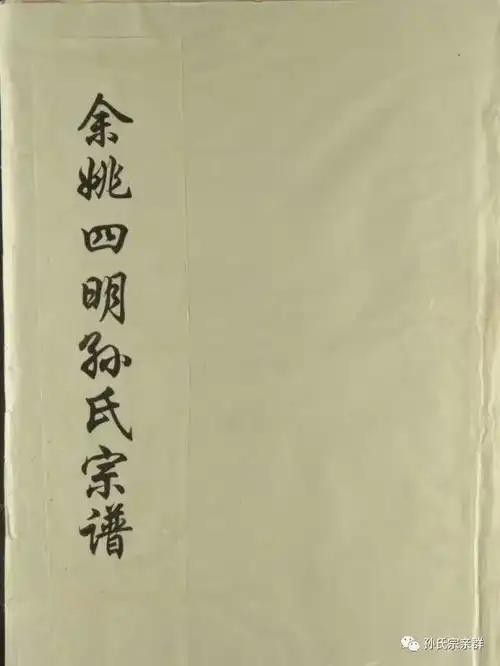 余姚四明孙氏宗谱
孙氏宗亲群